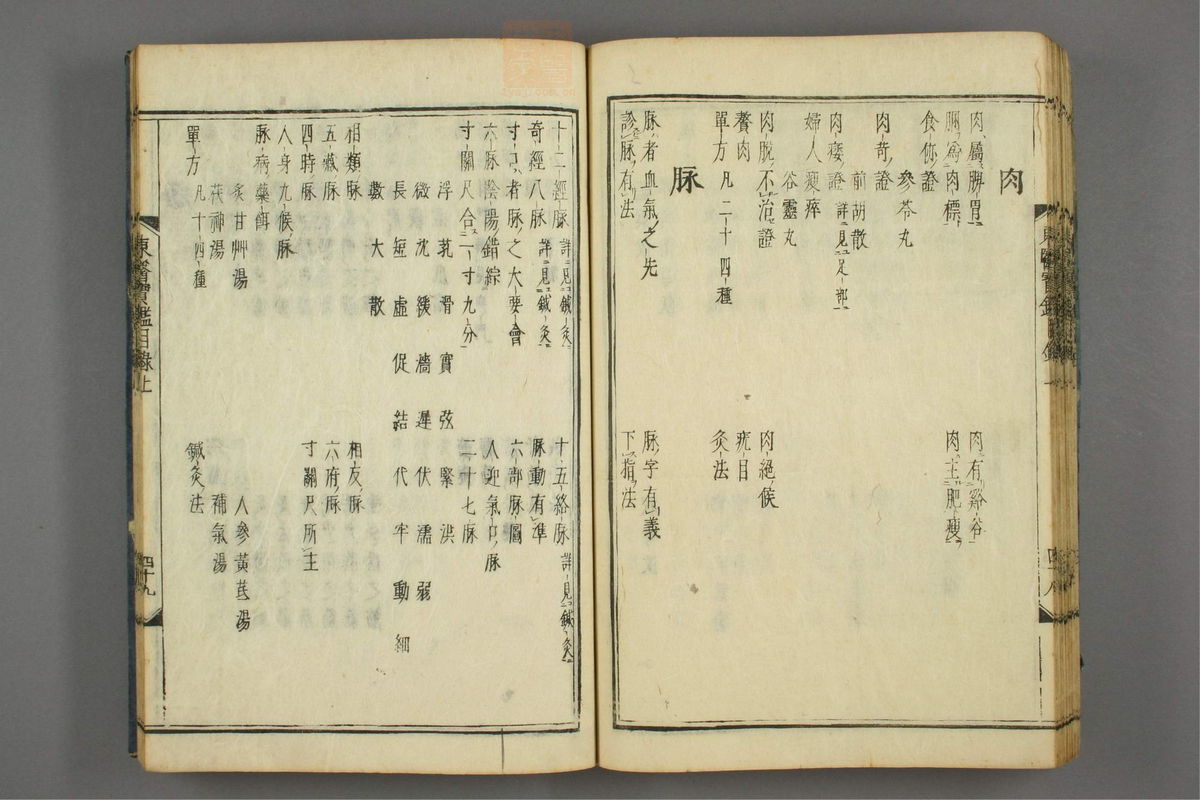 肉
肉屬脾胃
肉有谿谷
䐃爲肉標
肉主肥瘦
食㑊證
參苓丸
肉苛證
前胡散
肉痿證 詳見足部
婦人瘦瘁
谷靈丸
肉脫不治證
肉絕候
贅肉
疣目
單方 凡二十四種
灸法
脉
脉者血氣之先
脉字有義
診脉有法
下指法
東醫寶鑑目錄
四十八
十二經脉 詳見鍼灸
十五絡脉 詳見鍼灸
奇經八脉 詳見鍼灸
脉動有準
寸口者脉之大要會
六部脉圖
六脉陰陽錯綜
人迎氣口脉
寸關尺合一寸九分
二十七脉
浮 芤 滑 實 弦 緊 洪
微 沈 緩 濇 遲 伏 濡 弱
長 短 虛 促 結 代 牢 動 細
數 大 散
相類脉
相反脉
五臟脉
六府脉
四時脉
寸關尺所主
人身九候脉
脉病藥餌
人參黃芪湯
炙甘艸湯
補氣湯
茯神湯
單方 凡十四種
鍼灸法
東醫寶鑑目錄上
四十九